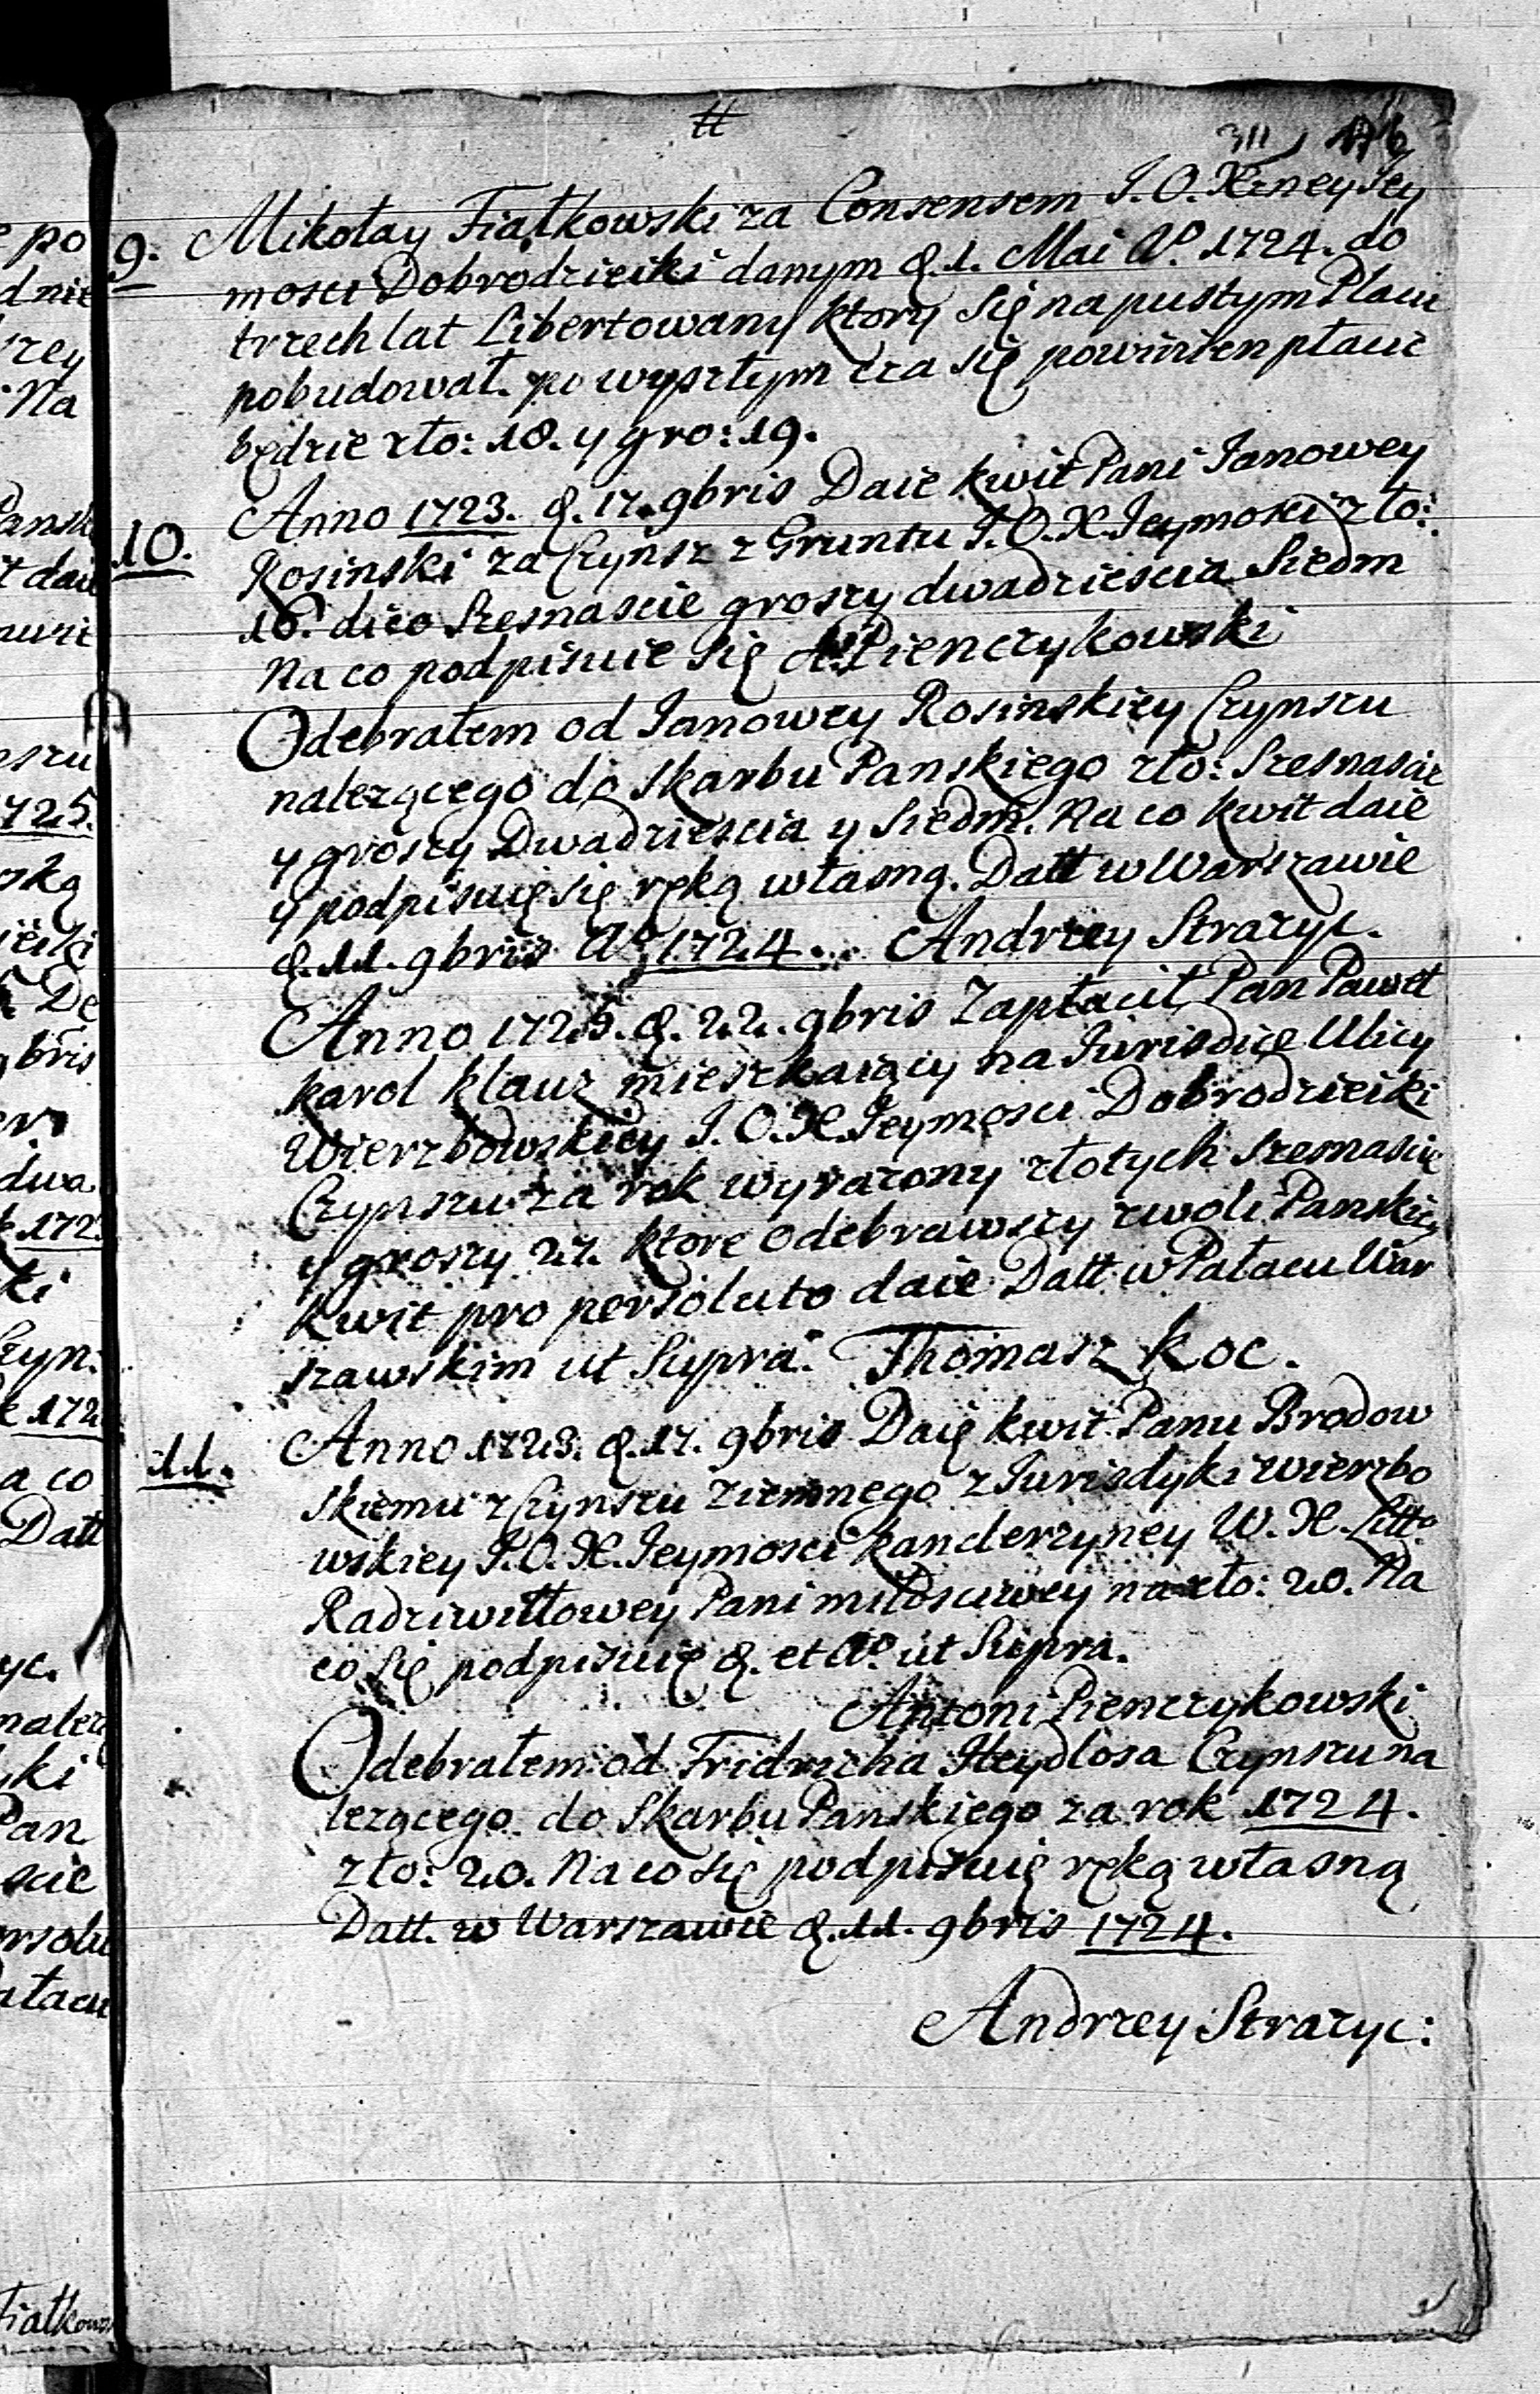 tt
311 176
9. Mikołay Fiałkowski za Consensem J.O. Xzney Jey
mosci Dobrodzieiki danym d. 1. Mai Aº. 1724. do
trzech lat Libertowany ktory się na pustym Placu
pobudował. po wyszłym cza się powinien płacic
będzie zło: 18. y gro: 19.
10. Anno 1723. d. 17. 9bris Daie kwit Pani Janowey
Rosinski za Czynsz z Gruntu J.O.X. Jeymosci zło:
16. dico Szesnascie groszy dwadziescia Siedm
Na co podpisuie się A. Pienczykowski
Odebrałem od Janowey Rosinskiey Czynszu
nalezącego do Skarbu Panskiego zło: Szesnascie
y groszy Dwadziescia y Siedm. Na co kwit daie
y podpisuię się ręką własną. Datt w Warszawie
d. 11. 9bris Aº 1724. Andrzey Strazyc.
Anno 1725. d. 22. 9bris Zapłacił Pan Paweł
Karol Klauz mieszkaiący na Jurisdice Ulicy
Wierzbowskiey J.O.X. Jeymosci Dobrodzieiki
Czynszu za rok wyrazony złotych szesnascie
y groszy 27. ktore odebrawszy zwoli Panskiey
kwit pro persoluto daie Datt w Pałacu War
szawskim ut Supra. Thomasz Koc.
11. Anno 1723. d. 17. 9bris Daię kwit Panu Brodow
skiemu z Czynszu ziemnego z Jurisdyki wierzbo
wskiey J.O.X. Jeymosci kanclerzyney W.X. Litto
Radziwiłłowey Pani miłosciwey na zło: 20. Na
co się podpisuię d. et Aº. ut Supra.
Antoni Pienczykowski
Odebrałem od Fridricha Heydlosa Czynszu na
lezącego do Skarbu Panskiego za rok 1724.
zło: 20. Na co się podpisuię ręką własną
Datt. w Warszawie d. 11. 9bris 1724.
Andrzey Strazyc: